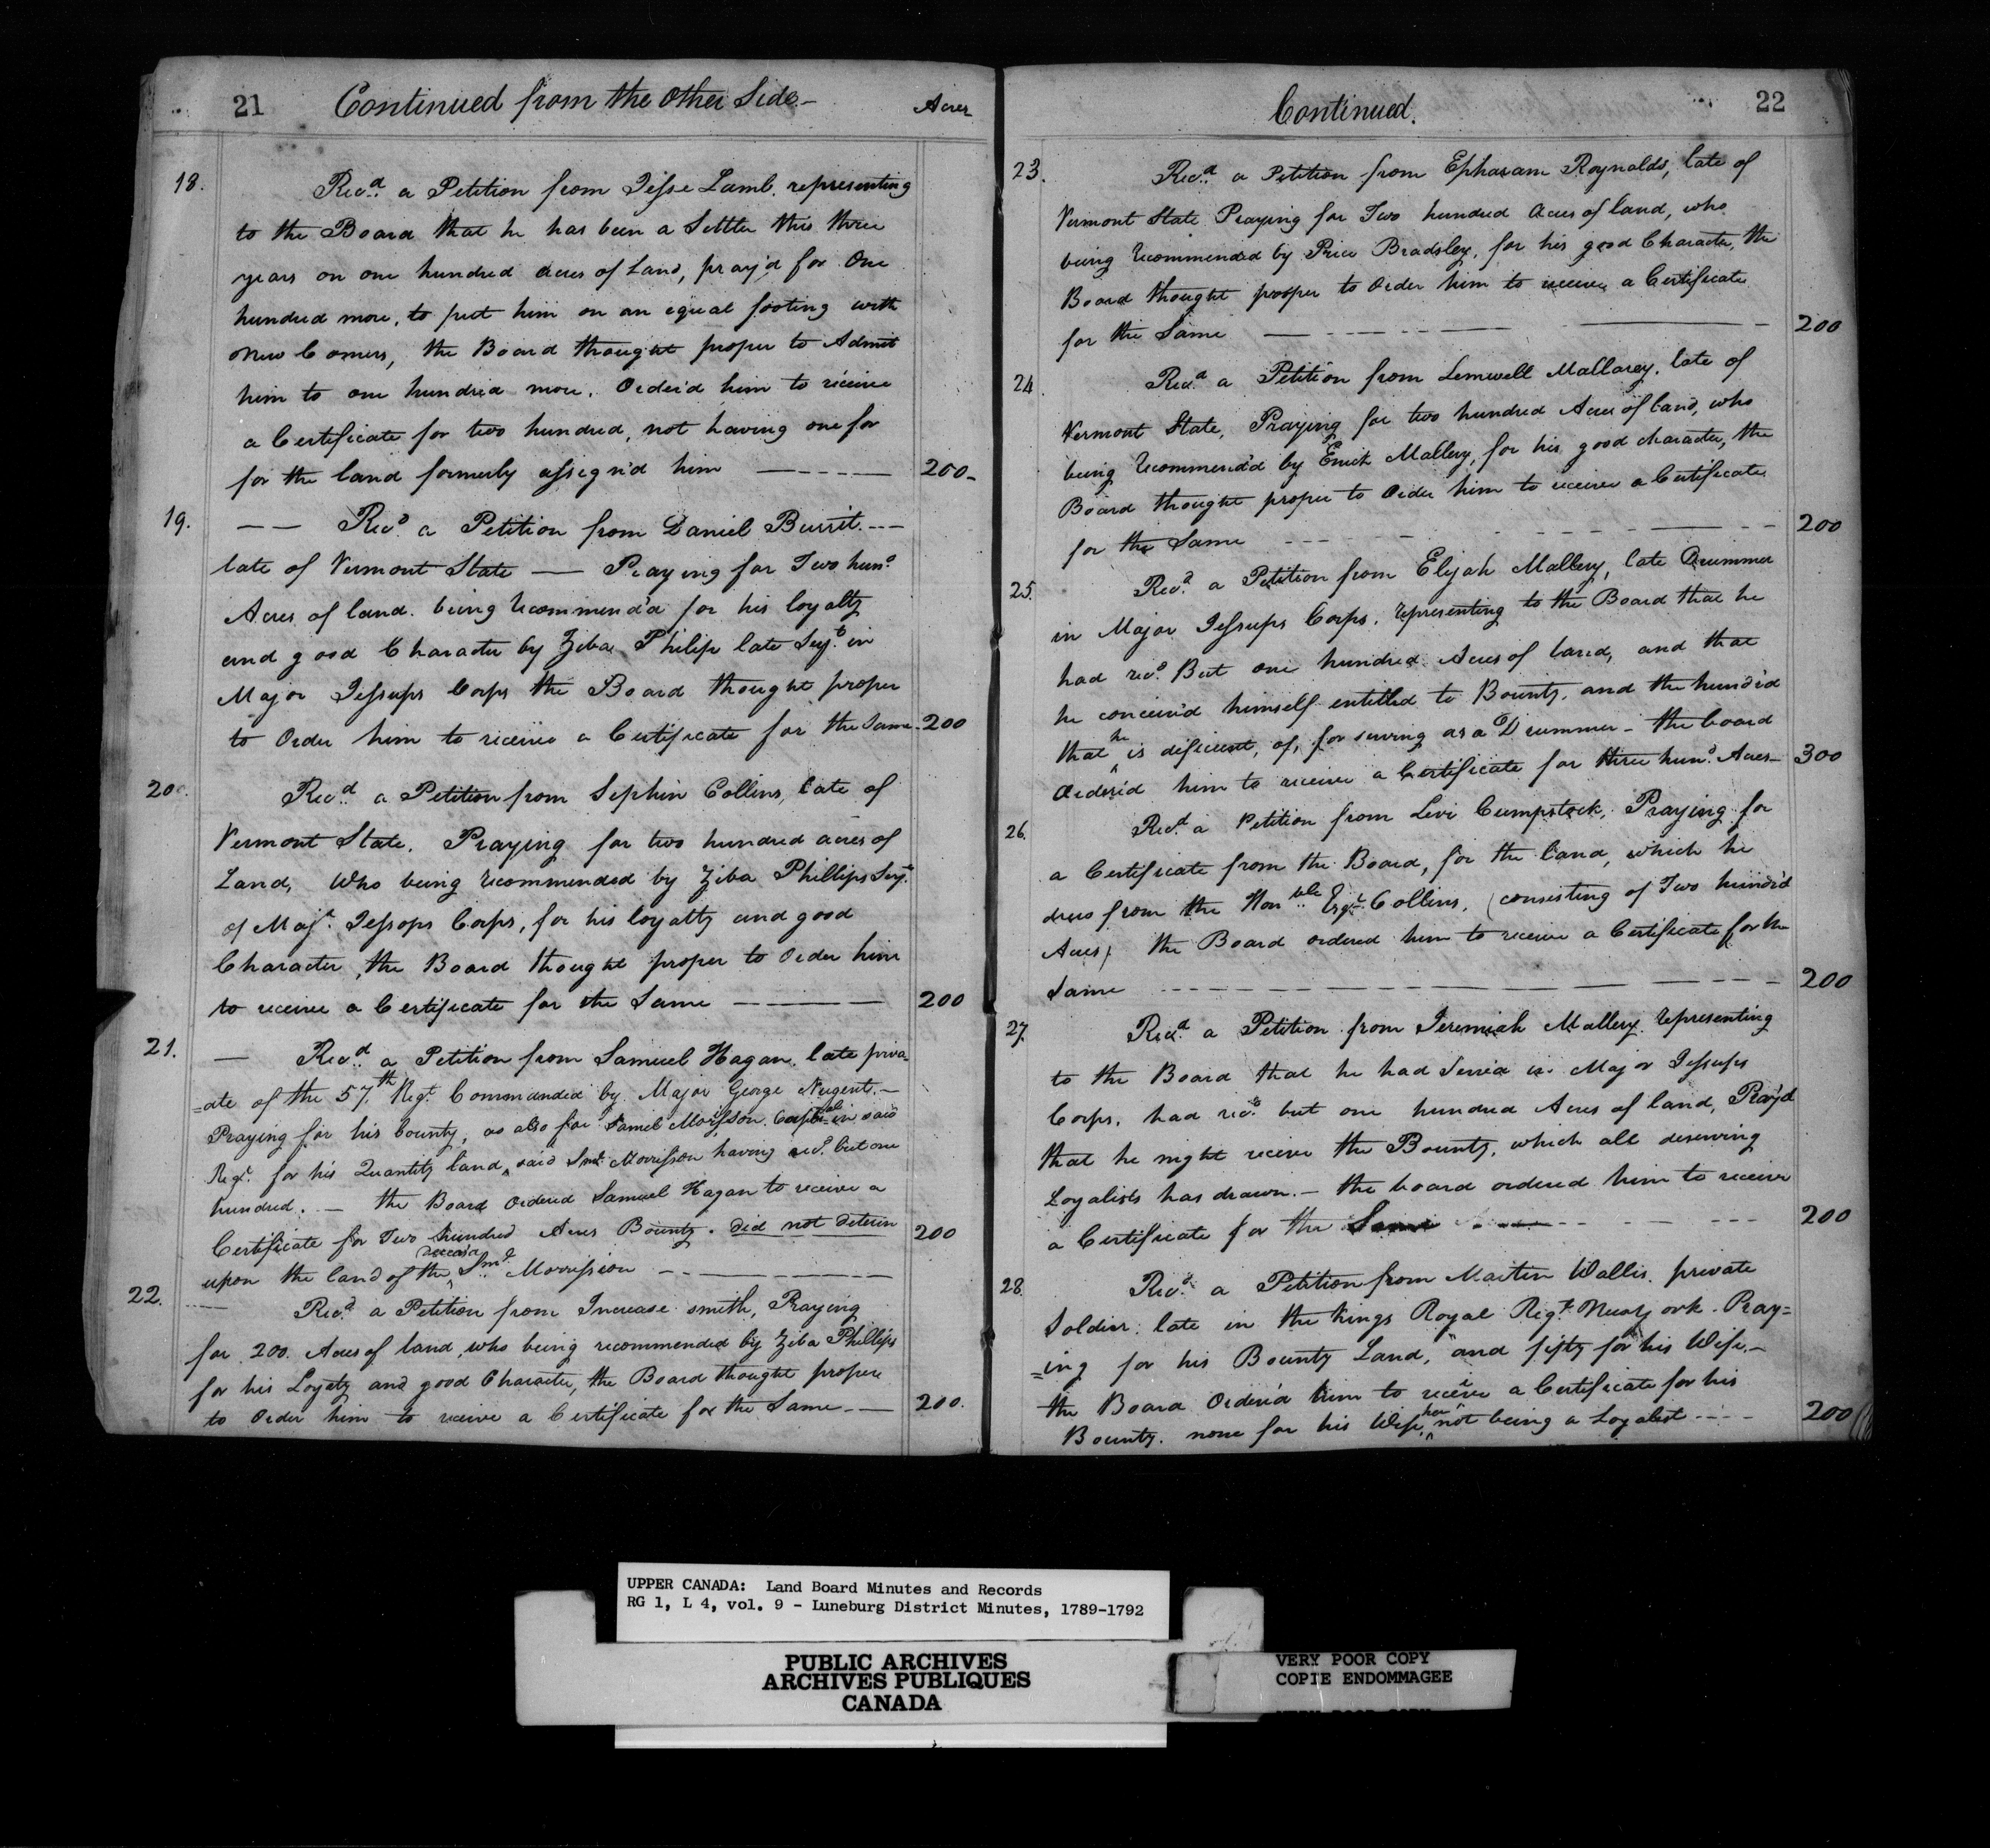 21 Continued from the other Side- Acres
18. Recd. a Petition from Jesse Lamb. representing
to the Board that he has been a Settler this three
years on one hundred acres of Land, pray'd for One
hundred more, to put him on an equal footing with
New Comers, the Board thought proper to Admit
him to one hundred more. Order'd him to receive
a Certificate for two hundred, not having one for
for the land formerly assign'd him 200-
19. Recd. a Petition from Daniel Burrit.
late of Vermont State — Praying for Two hund.
Acres of land. being recommend'd for his loyalty
and good Character by Ziba Philips late Serjt. in
Major Jessups Corps the Board thought proper
to Order him to receive a Certificate for the Same- 200
20. Recd. a Petition from Sephin Collins, late of
Vermont State. Praying for two hundred acres of
Land, Who being recommended by Ziba Phillips Serjt.
of Majr. Jessops Corps, for his loyalty and good
Character, the Board thought proper to Order him
to receive a Certificate for the Same 200
21. — Recd. a Petition from Samuel Hagan. late priva-
=ate of the 57th. Regt. Commanded by Major George Nugent.—
Praying for his bounty, as also for Samel Morisson. in said
Regt. for his Quantity land, said Saml. Morrisson having recd. but one
hundred. — the Board Ordered Samuel Hagan to receive a
Certificate for Two hundred Acres Bounty. did not deterin 200
upon the land of the Saml. Morrission
22. Recd. a Petition from Increase smith, Praying
for 200. Acres of land, who being recommended by Ziba Phillips
for his Loyaty and good Character, the Board thought proper
to Order him to receive a Certificate for the Same.— 200.
Continued. 22
23. Recd. a Petition from Epharam Roynalds, late of
Vermont State Praying for Two hundred Acres of land, who
being recommended by Price Bradsley, for his good Character, the
Board thought prosper to Order him to receive a Certificate
for the Same 200
24 Recd. a Petition from Lemwell Mallarey. late of
Vermont State, Praying for two hundred Acres of land, who
being recommend'd by Enich Mallery, for his good character, the
Board thought proper to Order him to receive a Certificate
for the Same 200
25. Recd. a Petition from Elijah Mallery, late Drummer
in Major Jessups Corps. representing to the Board that he
had recd. But one hundred Acres of land, and that
he conceiv'd himself entitled to Bounty. and the hundr'd
that he is deficient, of, for serving as a Drummer - the board
Order'd him to receive a Certificate for three hund. Acres— 300
26. Recd. a Petition from Levi Cumpstock, Praying for
a Certificate from the Board, for the land, which he
drew from the Honble. Esqr. Collins, (consisting of Two hundr'd
Acres) the Board ordered him to receive a Certificate for the
Same 200
27. Recd. a Petition from Jeremiah Mallery representing
to the Board that he had Serv'd in Major Jessups
Corps. had recd. but one hundred Acres of land, Pray'd
that he might receive the Bounty, which all deserving
Loyalists has drawn.— the board ordered him to receive
a Certificate for the Same 200
28. Recd. a Petition from Martin Wallis. private
Soldier. late in the Kings Royal Regt. New York. Pray=
=ing for his Bounty Land, and fifty for his Wife.—
the Board Order'd him to receive a Certificate for his
Bounty. none for his Wife, her not being a Loyalist 200
UPPER CANADA: Land Board Minutes and Records
RG 1, L 4, vol. 9 - Luneburg District Minutes, 1789-1792
PUBLIC ARCHIVES
ARCHIVES PUBLIQUES
CANADA
VERY POOR COPY
COPIE ENDOMMAGEE